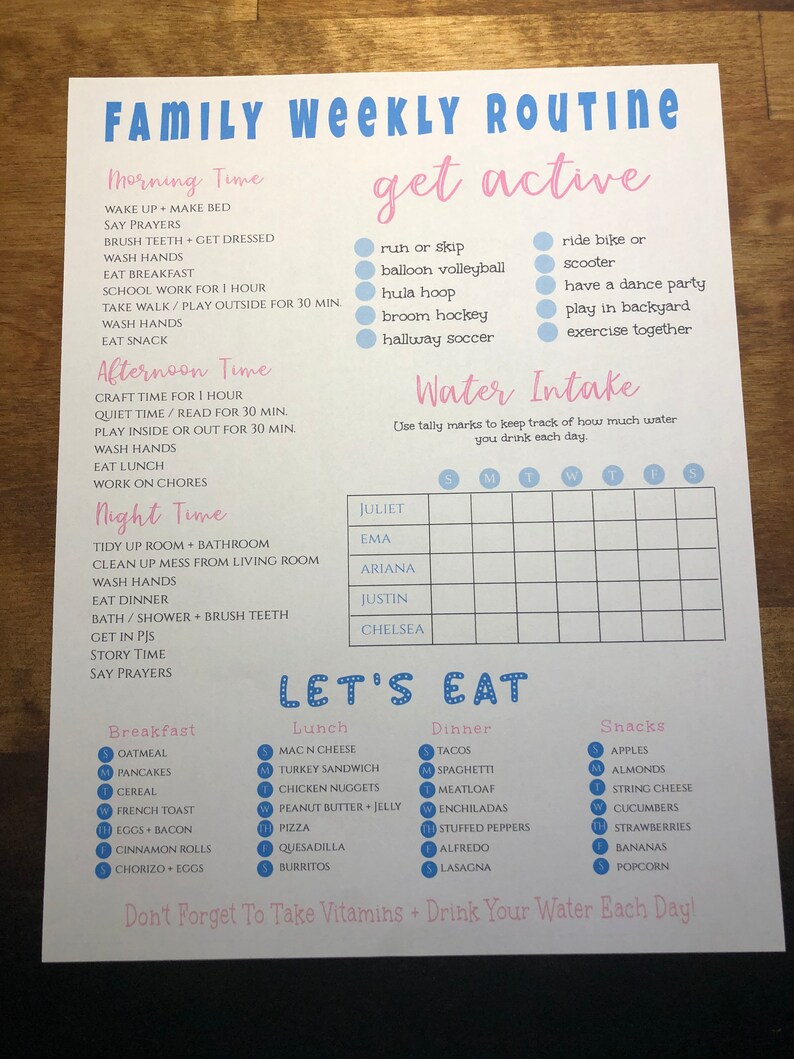 Family Weekly Routine
Morning Time
Wake up + make bed
Say Prayers
Brush teeth + get dressed
Wash hands
Eat breakfast
School work for 1 hour
Take walk / play outside for 30 min.
Wash hands
Eat snack
Afternoon Time
Craft time for 1 hour
Quiet time / read for 30 min.
Play inside or out for 30 min.
Wash hands
Eat lunch
Work on chores
Night Time
Tidy up room + bathroom
Clean up mess from living room
Wash hands
Eat dinner
Bath / shower + brush teeth
Get in PJs
Story Time
Say Prayers
get active
run or skip
balloon volleyball
hula hoop
broom hockey
hallway soccer
ride bike or
scooter
have a dance party
play in backyard
exercise together
Water Intake
Use tally marks to keep track of how much water
you drink each day.
S M T W T F S
Juliet
Ema
Ariana
Justin
Chelsea
LET'S EAT
Breakfast
S Oatmeal
M Pancakes
T Cereal
W French toast
TH Eggs + bacon
F Cinnamon rolls
S Chorizo + eggs
Lunch
S Mac n cheese
M Turkey sandwich
T Chicken nuggets
W Peanut butter + Jelly
TH Pizza
F Quesadilla
S Burritos
Dinner
S Tacos
M Spaghetti
T Meatloaf
W Enchiladas
TH Stuffed peppers
F Alfredo
S Lasagna
Snacks
S Apples
M Almonds
T String cheese
W Cucumbers
TH Strawberries
F Bananas
S Popcorn
Don't Forget To Take Vitamins + Drink Your Water Each Day!